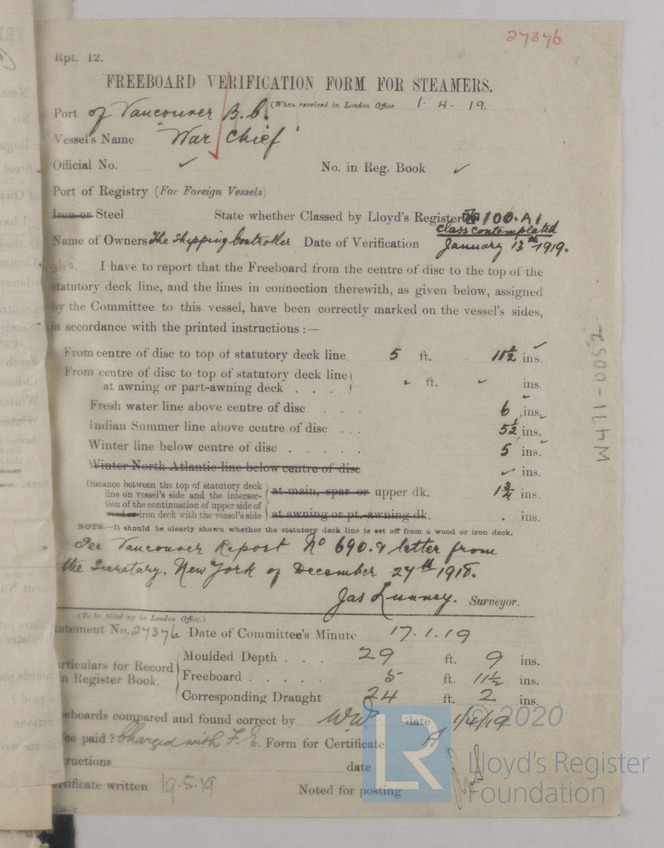 27376
Rpt. 12.
FREEBOARD VERIFICATION FORM FOR STEAMERS.
(When received in London Office 1. 4. 19. )
Port of Vancouver B.C.
Vessel's Name "War Chief"
Official No. ✓ No. in Reg. Book ✓
Port of Registry (For Foreign Vessels)
Iron or Steel State whether Classed by Lloyd's Register 100.A1
class contemplated
Name of Owners The Shipping Controller Date of Verification January 13th 1919.
I have to report that the Freeboard from the centre of disc to the top of the
statutory deck line, and the lines in connection therewith, as given below, assigned
by the Committee to this vessel, have been correctly marked on the vessel's sides,
in accordance with the printed instructions :—
From centre of disc to top of statutory deck line 5 ft. 11½ ins.
From centre of disc to top of statutory deck line
at awning or part-awning deck . . . ft. ins.
Fresh water line above centre of disc . . . 6 ins.
Indian Summer line above centre of disc . . . 5½ ins.
Winter line below centre of disc . . . . . 5 ins.
Winter North Atlantic line below centre of disc ✓ ins.
Distance between the top of statutory deck
line on vessel's side and the intersec-
tion of the continuation of upper side of
wood or iron deck with the vessel's side
at main, spar or upper dk. 1¾ ins.
at awning or pt.-awning dk. ins.
NOTE.—It should be clearly shown whether the statutory deck line is set off from a wood or iron deck.
See Vancouver Report No 690. & letter from
the Secretary. New York of December 27th 1918.
Jas Lunney. Surveyor.
(To be filled up in London Office.)
tatement No. 27376 Date of Committee's Minute 17.1.19
articulars for Record
n Register Book.
Moulded Depth . . . 29 ft. 9 ins.
Freeboard . . . . 5 ft. 11½ ins.
Corresponding Draught 24 ft. 2 ins.
eeboards compared and found correct by W.W. date 1/4/19
ee paid? Charged with F.E. Form for Certificate A
tructions date
ertificate written 19.5.19 Noted for posting
W471-0052
LR
© 2020
Lloyd's Register
Foundation